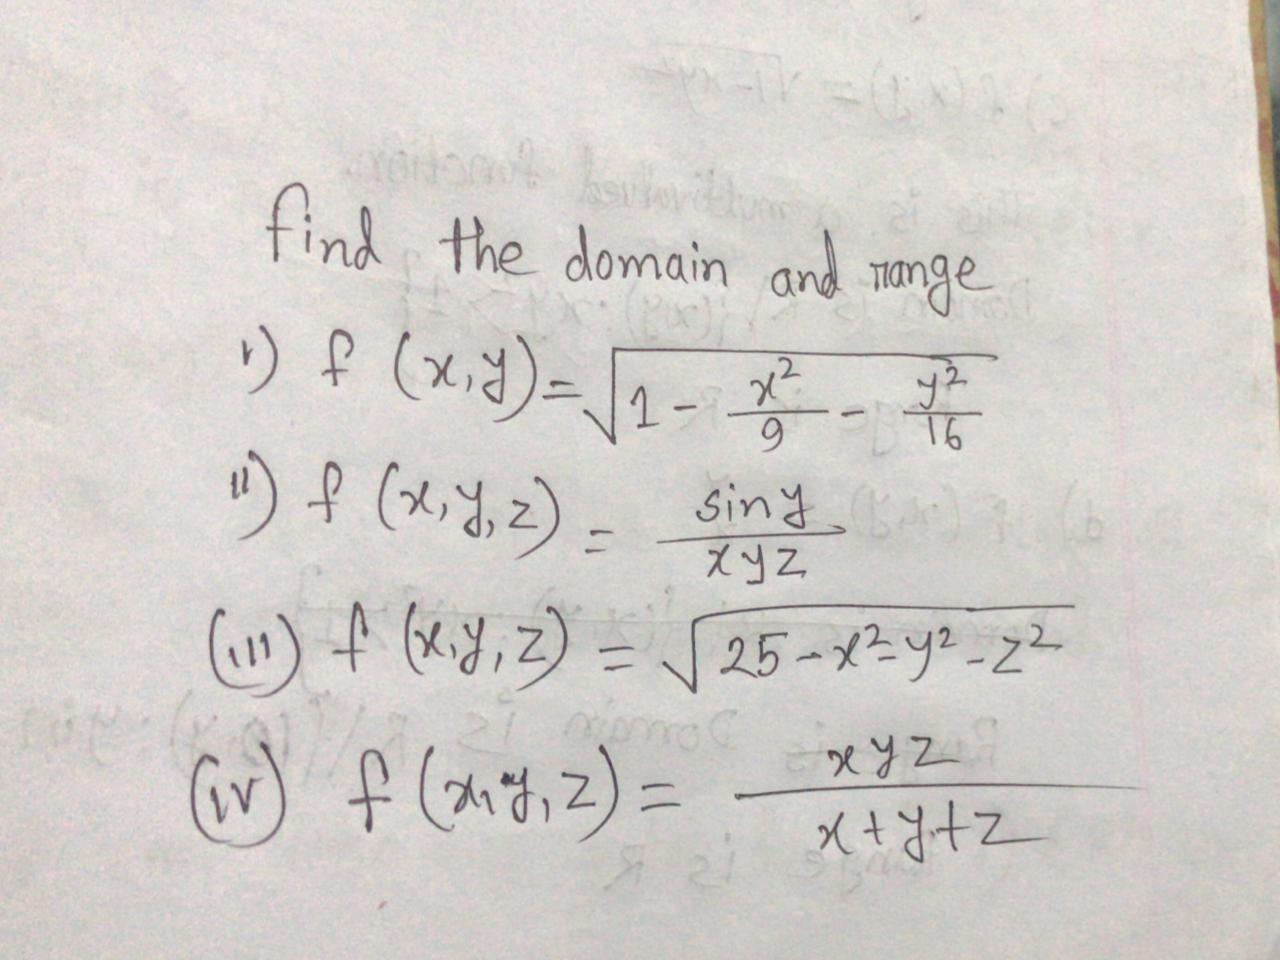 find the domain and range
i) f (x,y) = √(1 - x²/9 - y²/16)
ii) f (x,y,z) = sin y / xyz
(iii) f (x,y,z) = √(25-x²-y²-z²)
(iv) f (x,y,z) = xyz / x+y+z